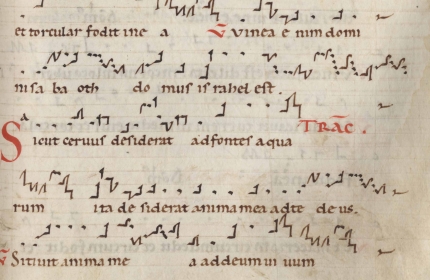 et torcular fodit in e a V Vinea e nim domi
ni sa ba oth do mus is rahel est.
TRAC.
Sicut ceruus desiderat ad fontes aqua
rum ita de siderat anima mea ad te de us.
V Sitiuit anima me a ad deum ui uum